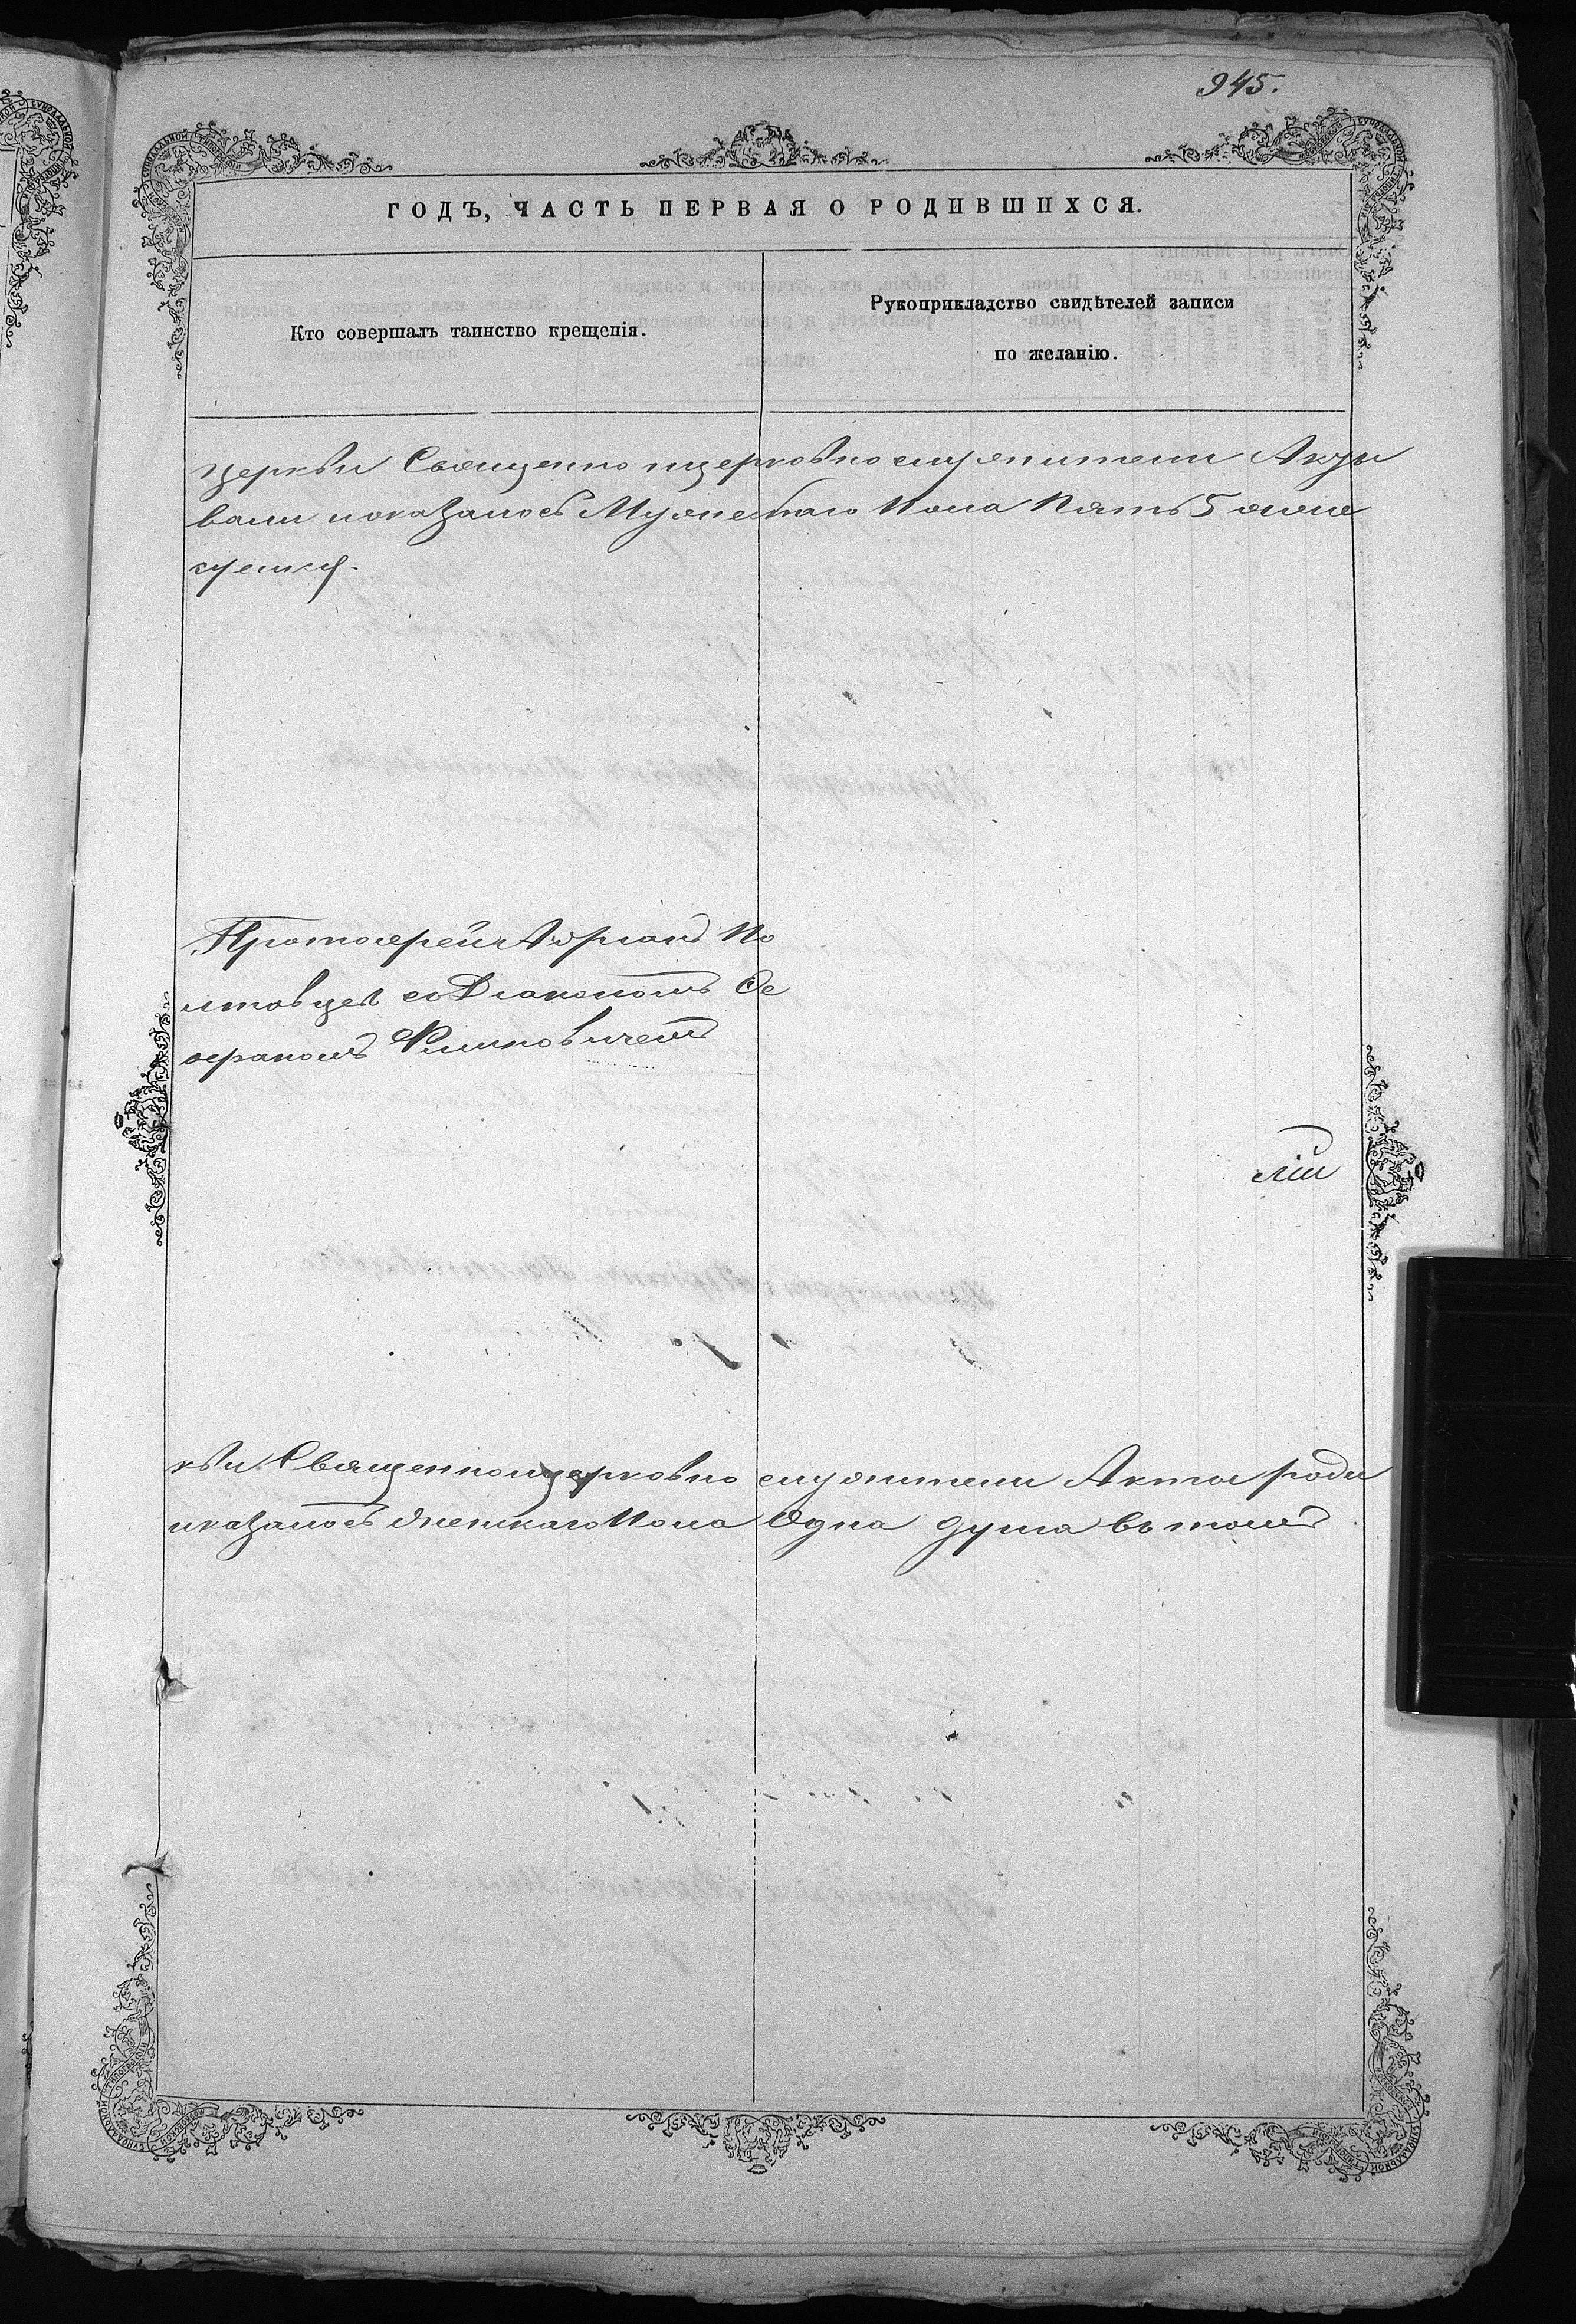 945.
ГОДЪ, ЧАСТЬ ПЕРВАЯ О РОДИВШИХСЯ.
Кто совершалъ таинство крещенія.
Рукоприкладство свидѣтелей записи
по желанію.
церкви Священно и церковнослужители Акты
вали показалось Мужескаго Пола Пять 5
Протоиерей Адріанъ По
лтовцев со Діакономъ Се
Филиповичемъ
кви Священноцерковно служители Акты роди
иказалось женскаго Пола Одна душа въ томъ